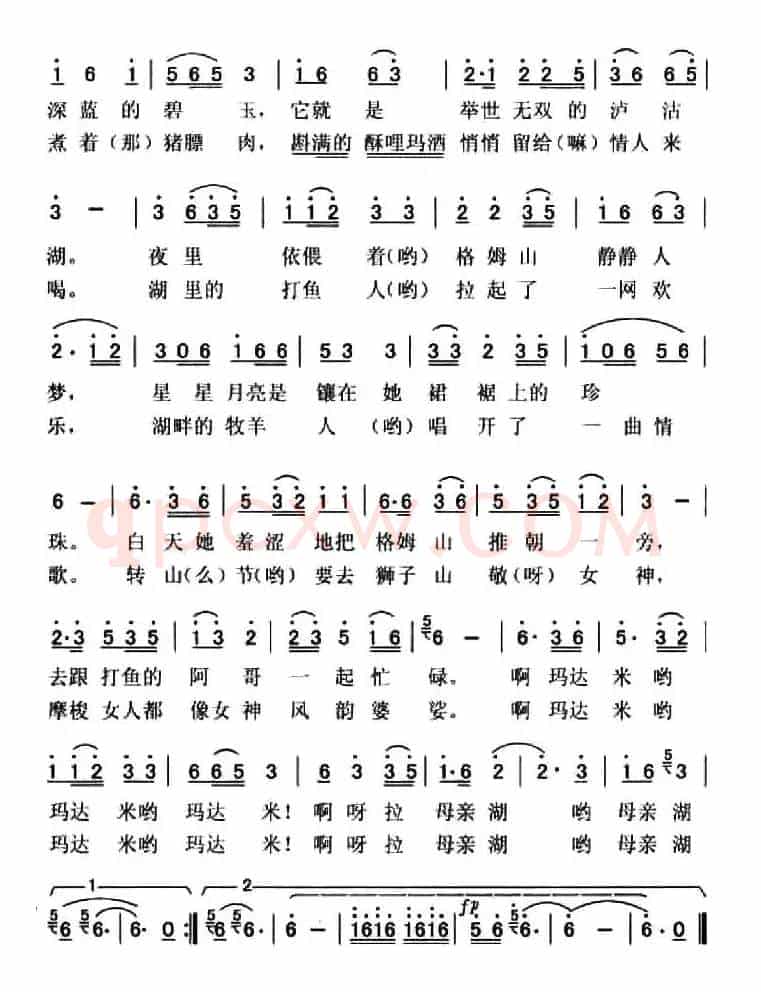 1 6 1 | 5 6 5 3 | 1 6 6 3 | 2·1 2 2 5 | 3 6 6 5 |
深蓝的碧玉，它就是 举世无双的泸沽
煮着(那)猪膘肉，斟满的酥哩玛酒悄悄留给(嘛)情人来
3 － | 3 6 3 5 | 1 1 2 3 3 | 2 2 3 5 | 1 6 6 3 |
湖。 夜里 依偎着(哟)格姆山 静静人
喝。 湖里的 打鱼人(哟)拉起了 一网欢
2· 1 2 | 3 0 6 1 6 6 | 5 3 3 | 3 3 2 3 5 | 1 0 6 5 6 |
梦， 星星月亮是 镶在她裙裾上的珍
乐， 湖畔的牧羊人(哟)唱开了一曲情
6 － | 6· 3 6 | 5 3 2 1 1 | 6·6 3 3 | 2 2 1 | 3 － |
珠。 白天她羞涩地把格姆山推朝一旁，
歌。 转山(么)节(哟)要去狮子山敬(呀)女神，
2·3 5 3 5 | 1 3 2 | 2 3 5 1 6 | 5 6 － | 6· 3 6 | 5· 3 2 |
去跟打鱼的阿哥一起忙碌。 啊玛达米哟
摩梭女人都像女神风韵婆娑。 啊玛达米哟
1 1 2 3 3 | 6 6 5 3 | 6 3 3 5 | 1·6 2 | 2· 3 | 1 6 5 3 |
玛达米哟玛达米！啊呀拉母亲湖 哟母亲湖
玛达米哟玛达米！啊呀拉母亲湖 哟母亲湖
1 2
5 6 5 6· | 6· 0 :‖ 5 6 5 6· | 6 － | 1616 1616 | 5 6 5 6· | 6 － | 6 0 ‖
fp
qpcxw.COM